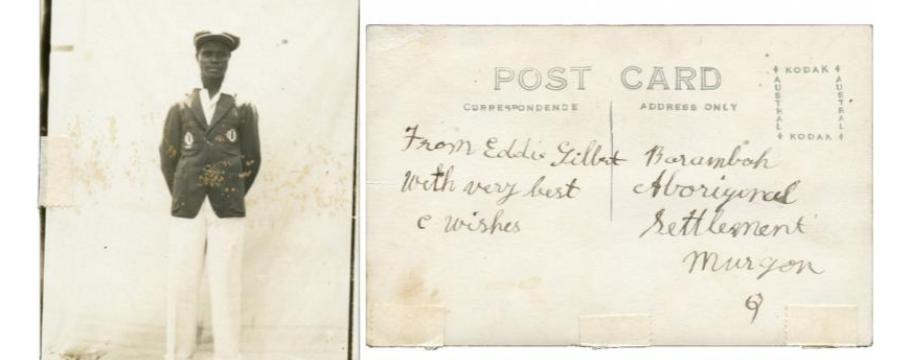 POST CARD
CORRESPONDENCE
ADDRESS ONLY
KODAK
AUSTRAL
AUSTRAL
KODAK
From Eddie Gilbert
With very best
c wishes
Barambah
Aboriginal
Settlement
Murgon
Q